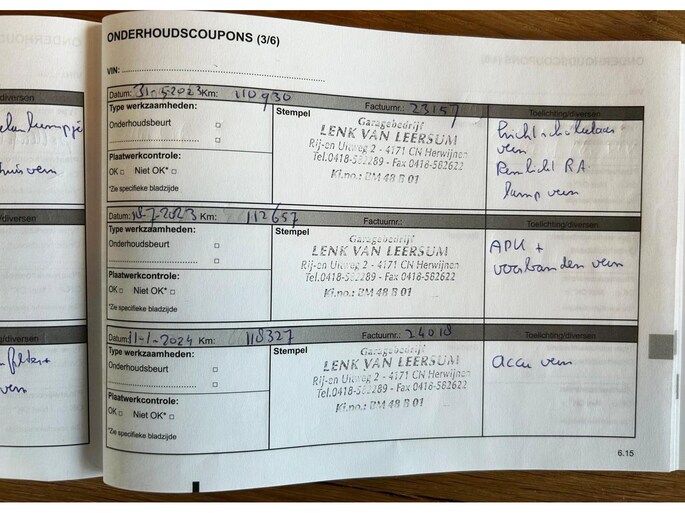 /diversen
huis vern
/diversen
g/diversen
filter +
vern
ONDERHOUDSCOUPONS (3/6)
VIN:
Datum: 31-5-2023 Km: 110930
Type werkzaamheden:
Stempel
Factuurnr.: 23157
Toelichting/diversen
Onderhoudsbeurt
Plaatwerkcontrole:
OK Niet OK*
*Zie specifieke bladzijde
Garagebedrijf
LENK VAN LEERSUM
Rij-en Uitweg 2 - 4171 CN Herwijnen
Tel.0418-582289 - Fax 0418-582622
Kl.no.: BM 48 B 01
vern
Remlicht R.A.
lamp vern
Datum: 18-7-2023 Km: 112657
Type werkzaamheden:
Stempel
Factuurnr.:
Toelichting/diversen
Onderhoudsbeurt
Plaatwerkcontrole:
OK Niet OK*
*Zie specifieke bladzijde
Garagebedrijf
LENK VAN LEERSUM
Rij-en Uitweg 2 - 4171 CN Herwijnen
Tel.0418-582289 - Fax 0418-582622
Kl.no.: BM 48 B 01
APK +
voorbanden vern
Datum: 11-1-2024 Km: 118327
Type werkzaamheden:
Stempel
Factuurnr.: 24018
Toelichting/diversen
Onderhoudsbeurt
Plaatwerkcontrole:
OK Niet OK*
*Zie specifieke bladzijde
Garagebedrijf
LENK VAN LEERSUM
Rij-en Uitweg 2 - 4171 CN Herwijnen
Tel.0418-582289 - Fax 0418-582622
Kl.no.: BM 48 B 01
accu vern
6.15